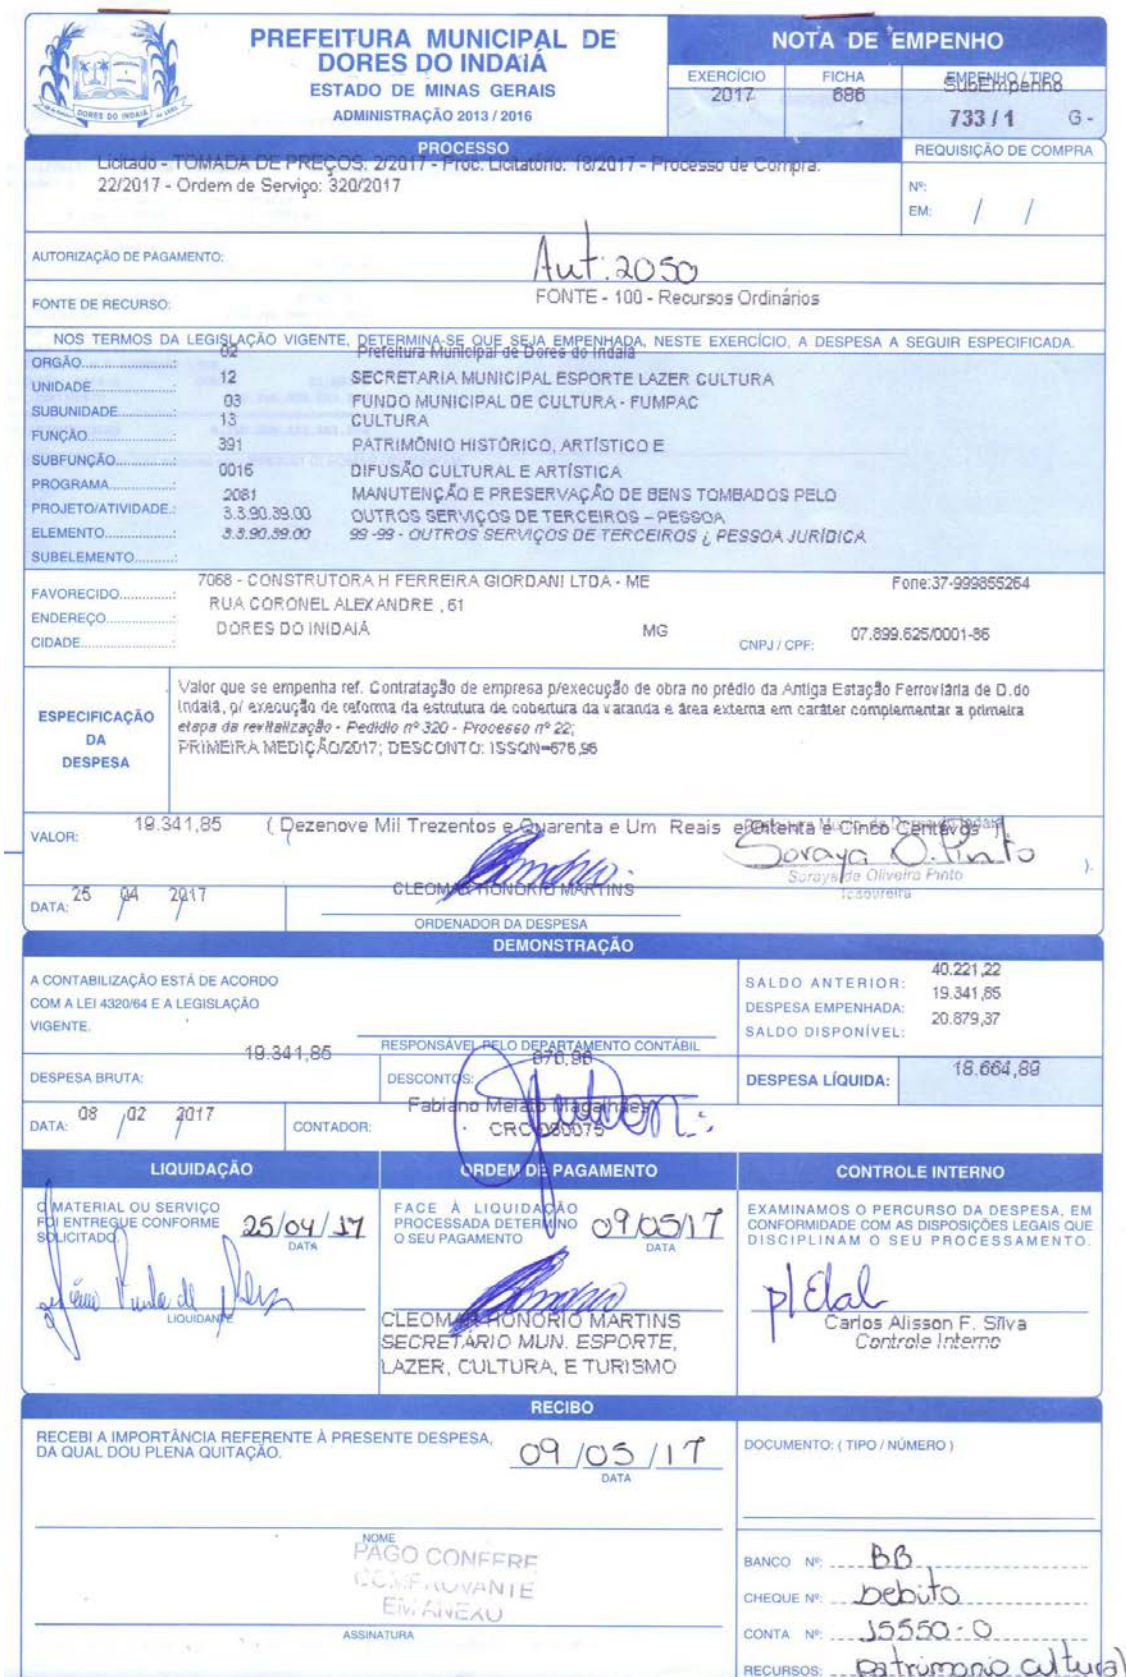 PREFEITURA MUNICIPAL DE
DORES DO INDAIÁ
ESTADO DE MINAS GERAIS
ADMINISTRAÇÃO 2013 / 2016
DORES DO INDAIÁ
NOTA DE EMPENHO
EXERCÍCIO FICHA EMPENHO / TIPO
2017 686 SubEmpenho
733 / 1 G -
PROCESSO
Licitado - TOMADA DE PREÇOS: 2/2017 - Proc. Licitatório: 18/2017 - Processo de Compra:
22/2017 - Ordem de Serviço: 320/2017
REQUISIÇÃO DE COMPRA
Nº:
EM: / /
AUTORIZAÇÃO DE PAGAMENTO: Aut: 2050
FONTE DE RECURSO: FONTE - 100 - Recursos Ordinários
NOS TERMOS DA LEGISLAÇÃO VIGENTE, DETERMINA-SE QUE SEJA EMPENHADA, NESTE EXERCÍCIO, A DESPESA A SEGUIR ESPECIFICADA.
ORGÃO: 02 Prefeitura Municipal de Dores do Indaiá
UNIDADE: 12 SECRETARIA MUNICIPAL ESPORTE LAZER CULTURA
SUBUNIDADE: 03 FUNDO MUNICIPAL DE CULTURA - FUMPAC
FUNÇÃO: 13 CULTURA
SUBFUNÇÃO: 391 PATRIMÔNIO HISTÓRICO, ARTÍSTICO E
PROGRAMA: 0016 DIFUSÃO CULTURAL E ARTÍSTICA
PROJETO/ATIVIDADE.: 2081 MANUTENÇÃO E PRESERVAÇÃO DE BENS TOMBADOS PELO
ELEMENTO: 3.3.90.39.00 OUTROS SERVIÇOS DE TERCEIROS – PESSOA
SUBELEMENTO: 3.3.90.39.00 99 -99 - OUTROS SERVIÇOS DE TERCEIROS ¿ PESSOA JURÍDICA
FAVORECIDO: 7068 - CONSTRUTORA H FERREIRA GIORDANI LTDA - ME Fone:37-999855264
ENDEREÇO: RUA CORONEL ALEXANDRE , 61
CIDADE: DORES DO INIDAIÁ MG CNPJ / CPF: 07.899.625/0001-86
ESPECIFICAÇÃO
DA
DESPESA
Valor que se empenha ref. Contratação de empresa p/execução de obra no prédio da Antiga Estação Ferroviária de D.do
Indaiá, p/ execução de reforma da estrutura de cobertura da varanda e área externa em caráter complementar a primeira
etapa da revitalização - Pedidio nº 320 - Processo nº 22;
PRIMEIRA MEDIÇÃO/2017; DESCONTO: ISSQN=676,96
VALOR: 19.341,85 ( Dezenove Mil Trezentos e Quarenta e Um Reais e Oitenta e Cinco Centavos )
( ).
Soraya O. Pinto
Soraya de Oliveira Pinto
Tesoureira
DATA: 25 / 04 / 2017
CLEOMAR HONORIO MARTINS
ORDENADOR DA DESPESA
DEMONSTRAÇÃO
A CONTABILIZAÇÃO ESTÁ DE ACORDO
COM A LEI 4320/64 E A LEGISLAÇÃO
VIGENTE.
RESPONSÁVEL PELO DEPARTAMENTO CONTÁBIL
SALDO ANTERIOR: 40.221,22
DESPESA EMPENHADA: 19.341,85
SALDO DISPONÍVEL: 20.879,37
DESPESA BRUTA: 19.341,85
DESCONTOS: 676,96
DESPESA LÍQUIDA: 18.664,89
DATA: 08 / 02 / 2017
CONTADOR: Fabiano Melato Magalhaes
CRC 080075
LIQUIDAÇÃO
O MATERIAL OU SERVIÇO
FOI ENTREGUE CONFORME
SOLICITADO.
25/04/17
DATA
LIQUIDANTE
ORDEM DE PAGAMENTO
FACE À LIQUIDAÇÃO
PROCESSADA DETERMINO
O SEU PAGAMENTO
09/05/17
DATA
CLEOMAR HONORIO MARTINS
SECRETÁRIO MUN. ESPORTE,
LAZER, CULTURA, E TURISMO
CONTROLE INTERNO
EXAMINAMOS O PERCURSO DA DESPESA, EM
CONFORMIDADE COM AS DISPOSIÇÕES LEGAIS QUE
DISCIPLINAM O SEU PROCESSAMENTO.
Carlos Alisson F. Silva
Controle Interno
RECIBO
RECEBI A IMPORTÂNCIA REFERENTE À PRESENTE DESPESA,
DA QUAL DOU PLENA QUITAÇÃO.
09/05/17
DATA
NOME
PAGO CONFERE
COMPROVANTE
EM ANEXO
ASSINATURA
DOCUMENTO: ( TIPO / NÚMERO )
BANCO Nº: BB
CHEQUE Nº: Debito
CONTA Nº: 15550-0
RECURSOS: Patrimonio cultural